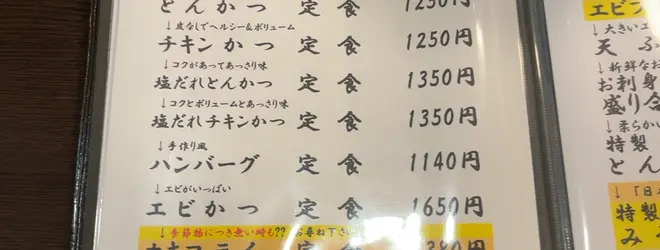 とんかつ 定食 1250円
↓皮なしでヘルシー&ボリューム
チキンかつ 定食 1250円
↓コクがあってあっさり味
塩だれとんかつ 定食 1350円
↓コクとボリュームとあっさり味
塩だれチキンかつ 定食 1350円
↓手作り風
ハンバーグ 定食 1140円
↓エビがいっぱい
エビかつ 定食 1650円
↓季節物につき無い時も?? お尋ね下さい
カキフライ 定食 380円
エビフ
↓大きいエ
天ぷ
↓新鮮なお
お刺身
盛り合
↓柔らかい
特製
とん
↓「日
特製
みそ